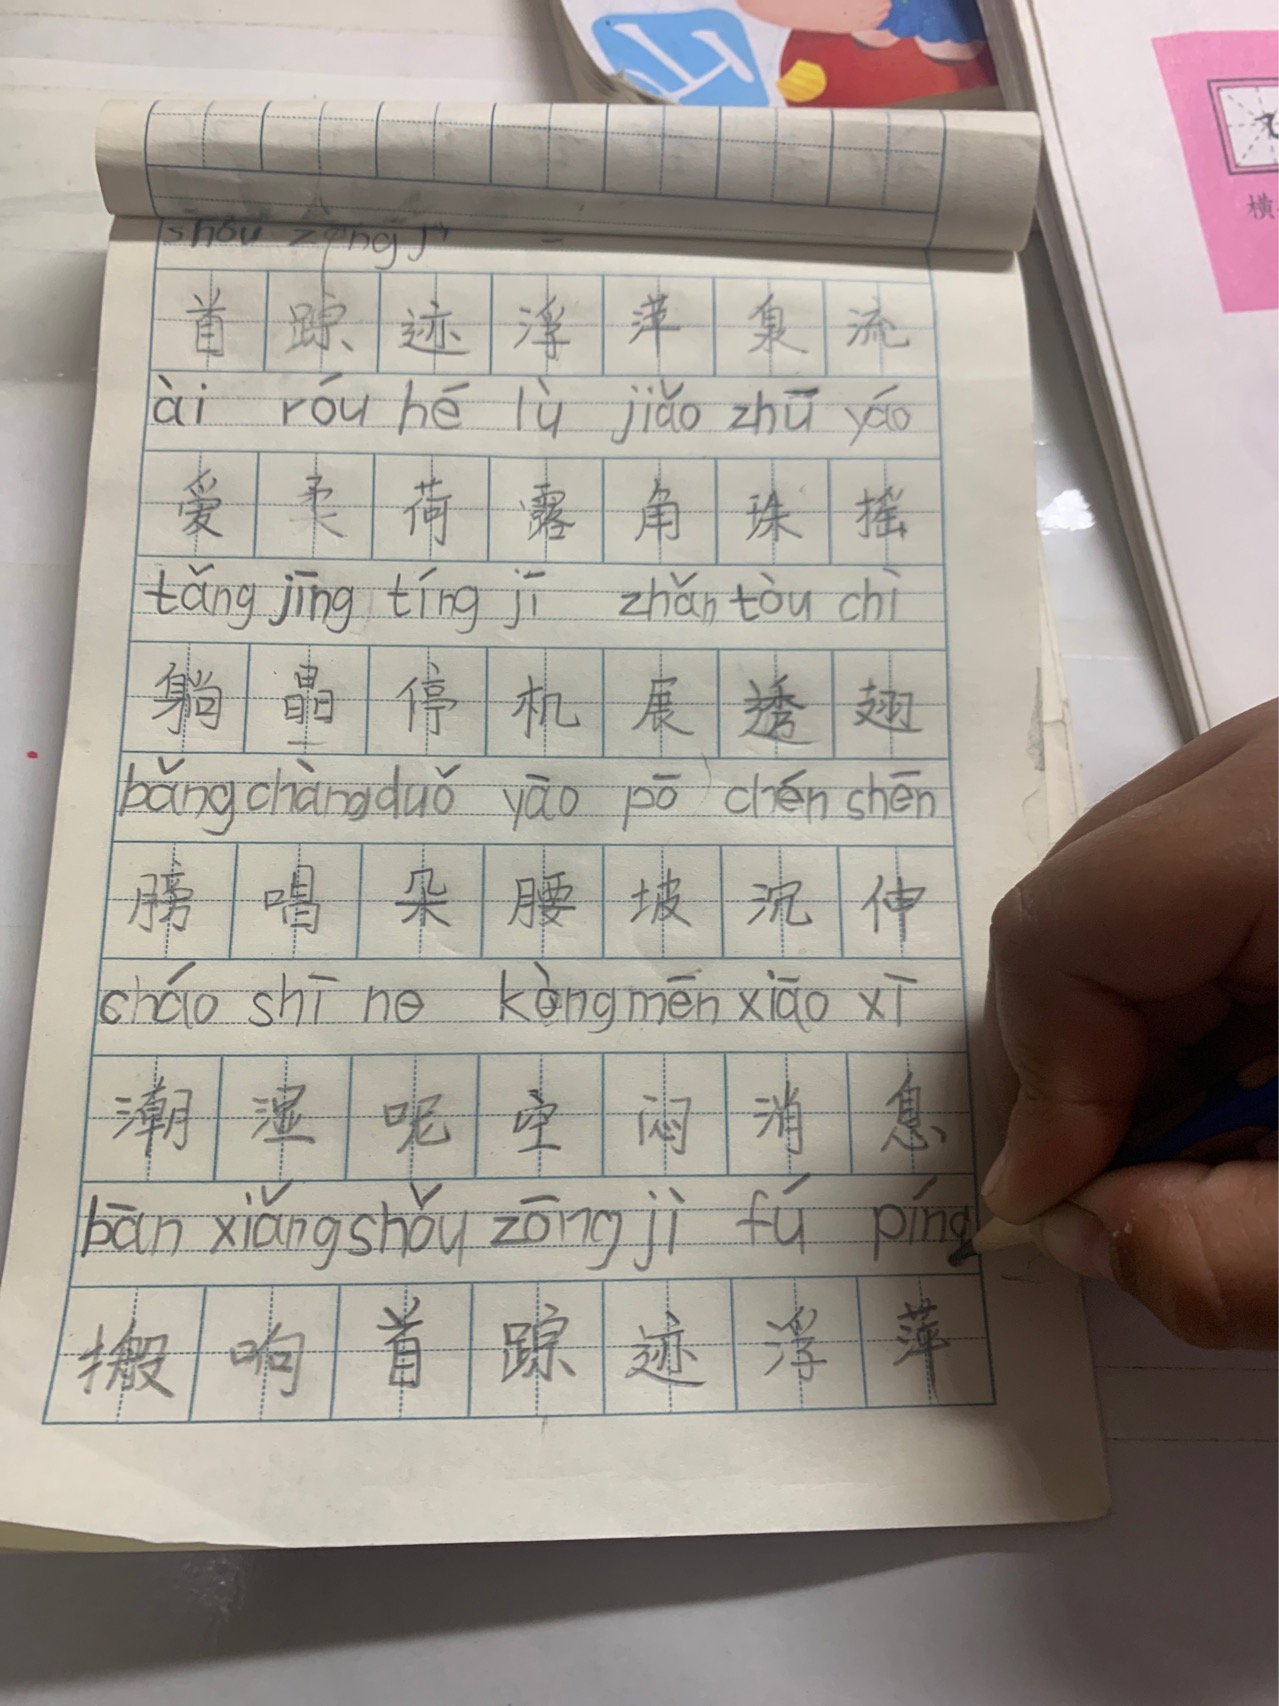 shǒu zōng jì
首 踪 迹 浮 萍 泉 流
ài róu hé lù jiǎo zhū yáo
爱 柔 荷 露 角 珠 摇
tǎng jīng tíng jī zhǎn tòu chì
躺 晶 停 机 展 透 翅
bǎng chàng duǒ yāo pō chén shēn
膀 唱 朵 腰 坡 沉 伸
cháo shī ne kòng mēn xiāo xī
潮 湿 呢 空 闷 消 息
bān xiǎng shǒu zōng jì fú píng
搬 响 首 踪 迹 浮 萍
横